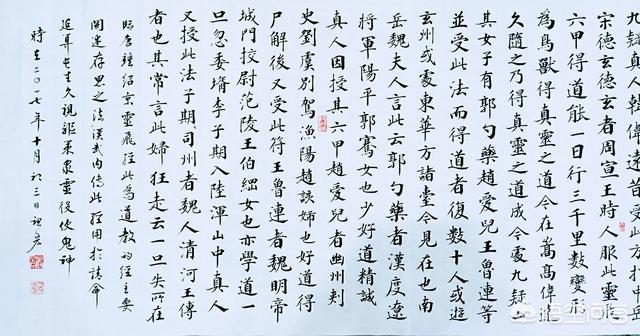 九疑真人韓偉遠昔受此方於中
宗德德玄者周宣王時人服此靈飛
六甲得道能一日行三千里數變形
為鳥獸得真靈之道今在嵩高偉遠
久隨之乃得真靈之道成今處九疑山
其女子有郭勺藥趙愛兒王魯連等
並受此法而得道者復數十人或遊
玄州或處東華方諸臺今見在也南
岳魏夫人言此云郭勺藥者漢度遼
將軍陽平郭騫女也少好道精誠
真人因授其六甲趙愛兒者幽州刺
史劉虞別駕漁陽趙該姊也好道得
尸解後又受此符王魯連者魏明帝
城門校尉范陵王伯綱女也亦學道一
旦忽委壻李子期入陸渾山中真人
又授此法子期司州者魏人清河王傳
者也其常言此婦狂走云一旦失所在
臨唐鍾紹京靈飛經此為道教的經主要
闡述存思之法漢武內傳此經用於請命
延算長生久視驅策眾靈役使鬼神
時在二〇一七年十月三日
悟空问答